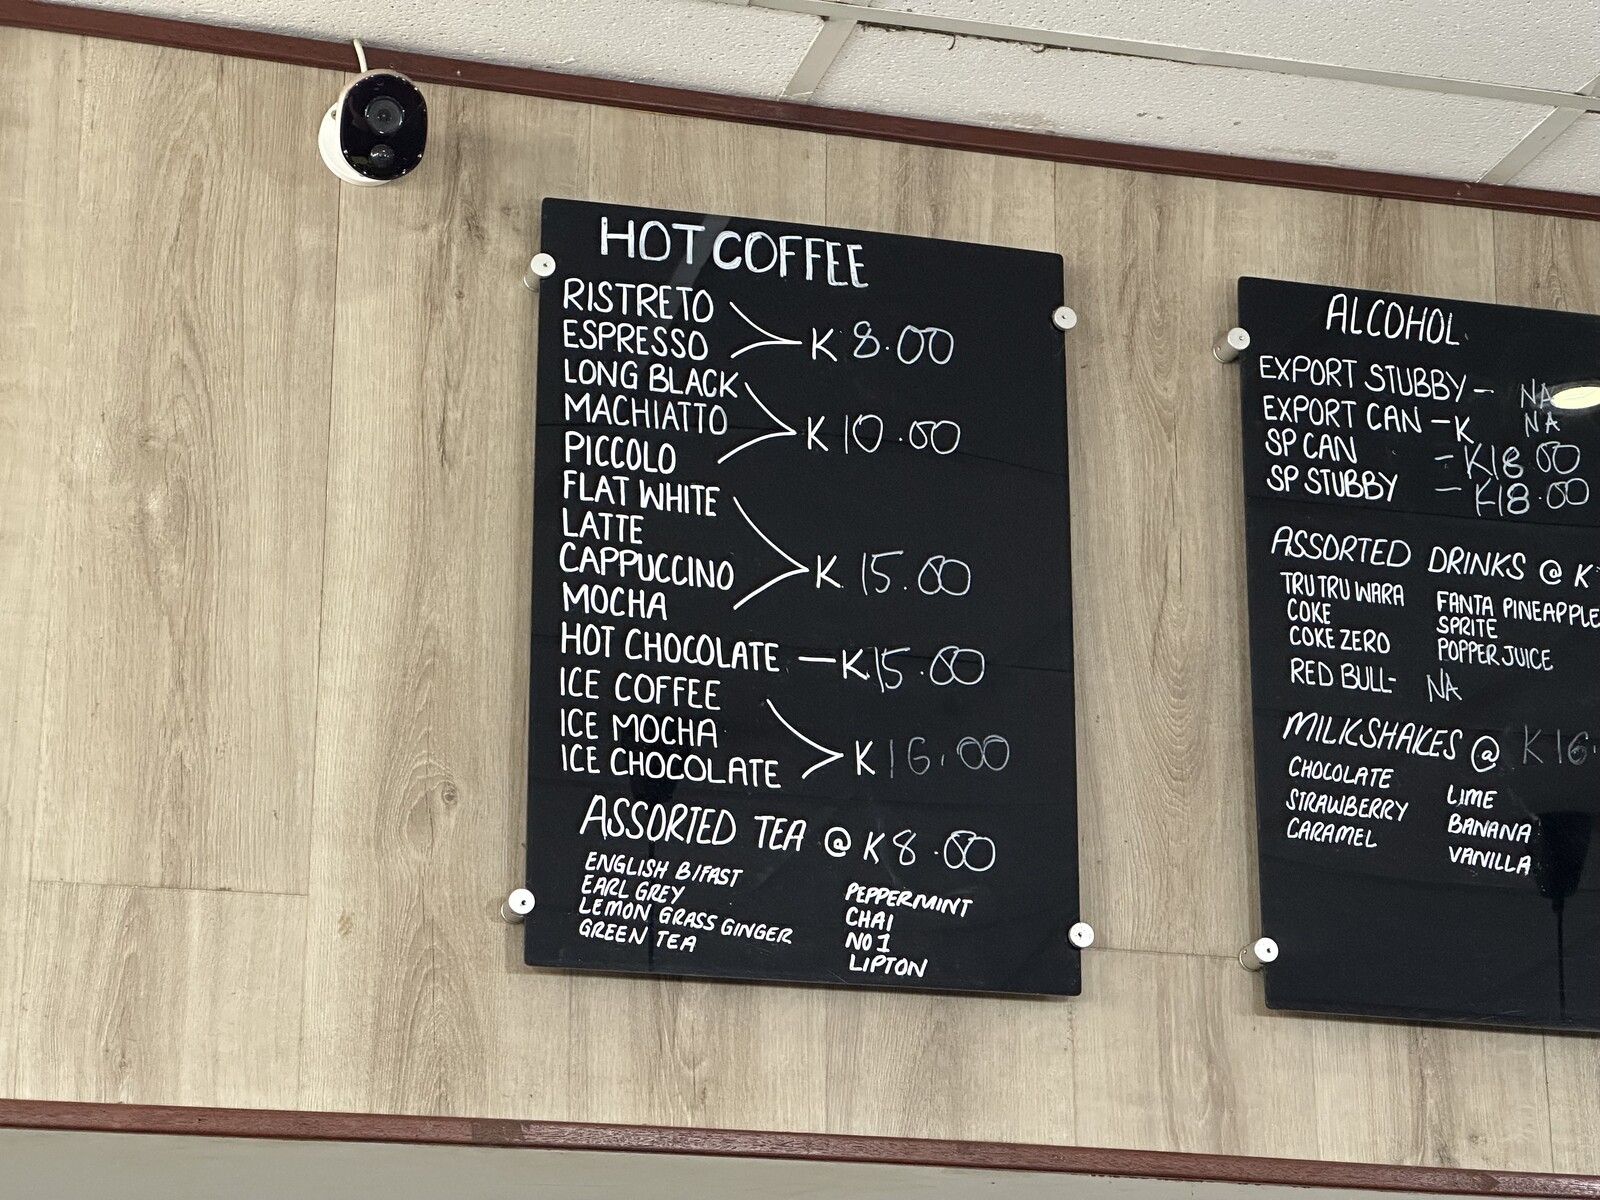 HOT COFFEE
RISTRETO
ESPRESSO
K 8.00
LONG BLACK
MACHIATTO
PICCOLO
K 10.00
FLAT WHITE
LATTE
CAPPUCCINO
MOCHA
K 15.00
HOT CHOCOLATE — K 15.00
ICE COFFEE
ICE MOCHA
ICE CHOCOLATE
K 16.00
ASSORTED TEA @ K 8.00
ENGLISH B/FAST
EARL GREY
LEMON GRASS GINGER
GREEN TEA
PEPPERMINT
CHAI
NO 1
LIPTON
ALCOHOL
EXPORT STUBBY - NA
EXPORT CAN - K NA
SP CAN - K18.00
SP STUBBY - K18.00
ASSORTED DRINKS @ K
TRU TRU WARA
COKE
COKE ZERO
FANTA PINEAPPLE
SPRITE
POPPER JUICE
RED BULL- NA
MILKSHAKES @ K 16.
CHOCOLATE
STRAWBERRY
CARAMEL
LIME
BANANA
VANILLA